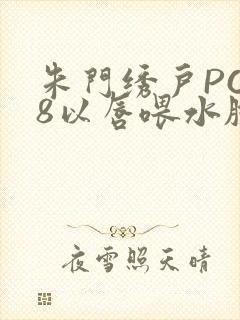 朱門绣戸PO
8以唇喂水腿
夜雪照天晴